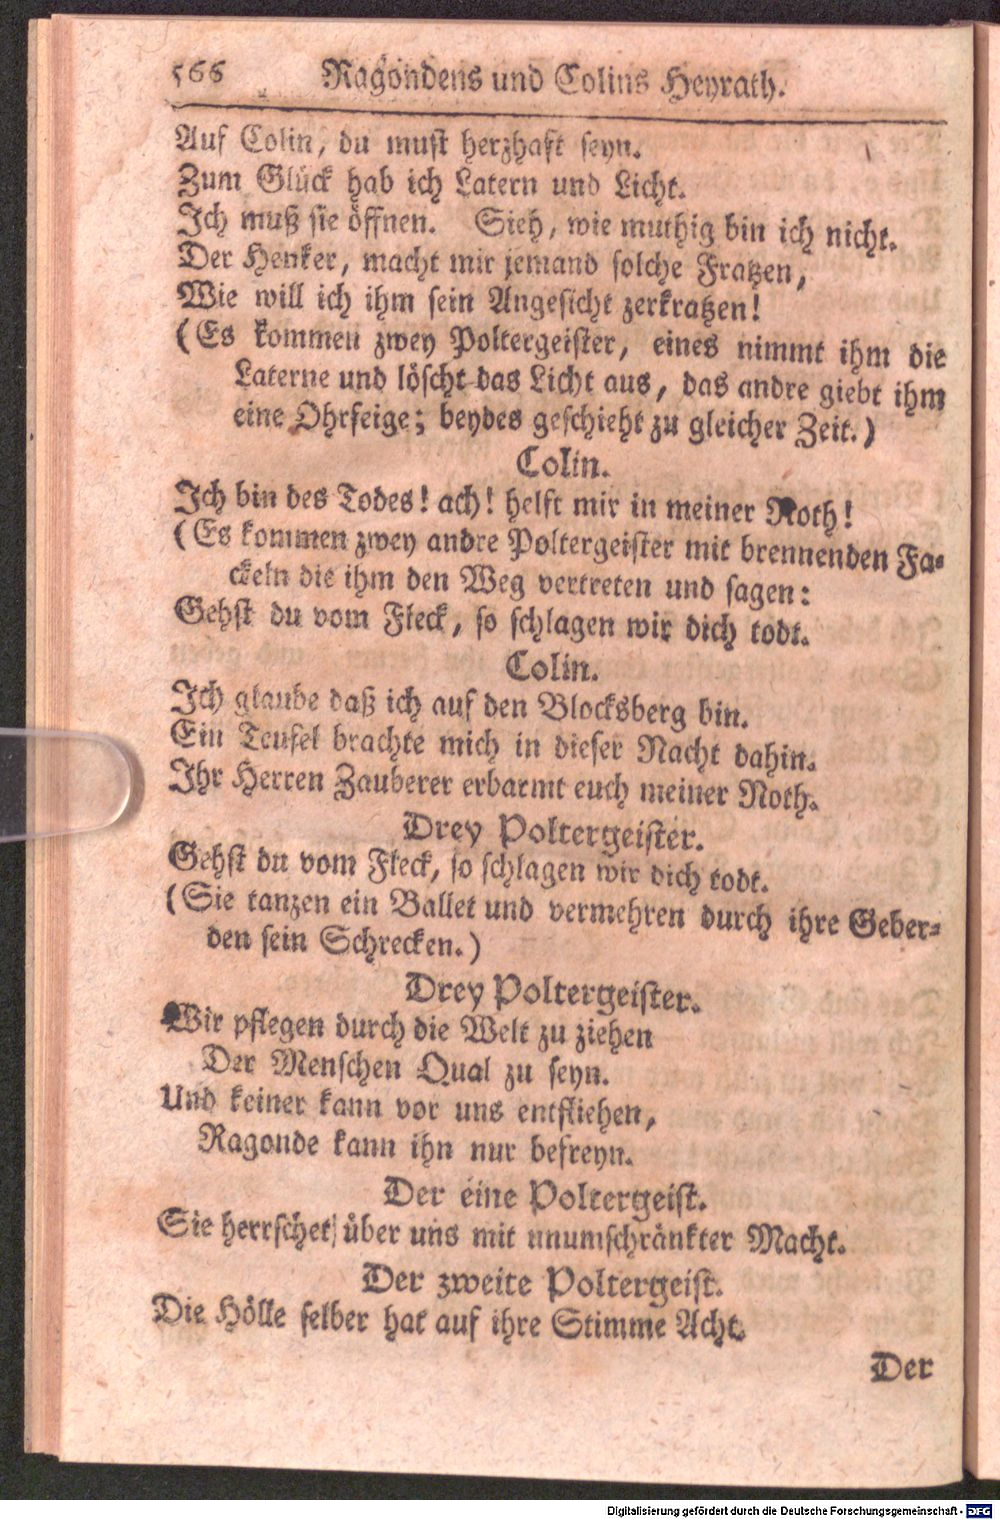 566 Ragondens und Colins Heyrath.
Auf Colin, du must herzhaft seyn.
Zum Glück hab ich Latern und Licht.
Ich muß sie öffnen. Sieh, wie muthig bin ich nicht.
Der Henker, macht mir jemand solche Fratzen,
Wie will ich ihm sein Angesicht zerkratzen!
(Es kommen zwey Poltergeister, eines nimmt ihm die
Laterne und löscht das Licht aus, das andre giebt ihm
eine Ohrfeige; beydes geschieht zu gleicher Zeit.)
Colin.
Ich bin des Todes! ach! helft mir in meiner Noth!
(Es kommen zwey andre Poltergeister mit brennenden Fa-
ckeln die ihm den Weg vertreten und sagen:
Gehst du vom Fleck, so schlagen wir dich todt.
Colin.
Ich glaube daß ich auf den Blocksberg bin.
Ein Teufel brachte mich in dieser Nacht dahin.
Ihr Herren Zauberer erbarmt euch meiner Noth.
Drey Poltergeister.
Gehst du vom Fleck, so schlagen wir dich todt.
(Sie tanzen ein Ballet und vermehren durch ihre Geber-
den sein Schrecken.)
Drey Poltergeister.
Wir pflegen durch die Welt zu ziehen
Der Menschen Qual zu seyn.
Und keiner kann vor uns entfliehen,
Ragonde kann ihn nur befreyn.
Der eine Poltergeist.
Sie herrschet über uns mit unumschränkter Macht.
Der zweite Poltergeist.
Die Hölle selber hat auf ihre Stimme Acht.
Der
Digitalisierung gefördert durch die Deutsche Forschungsgemeinschaft - DFG